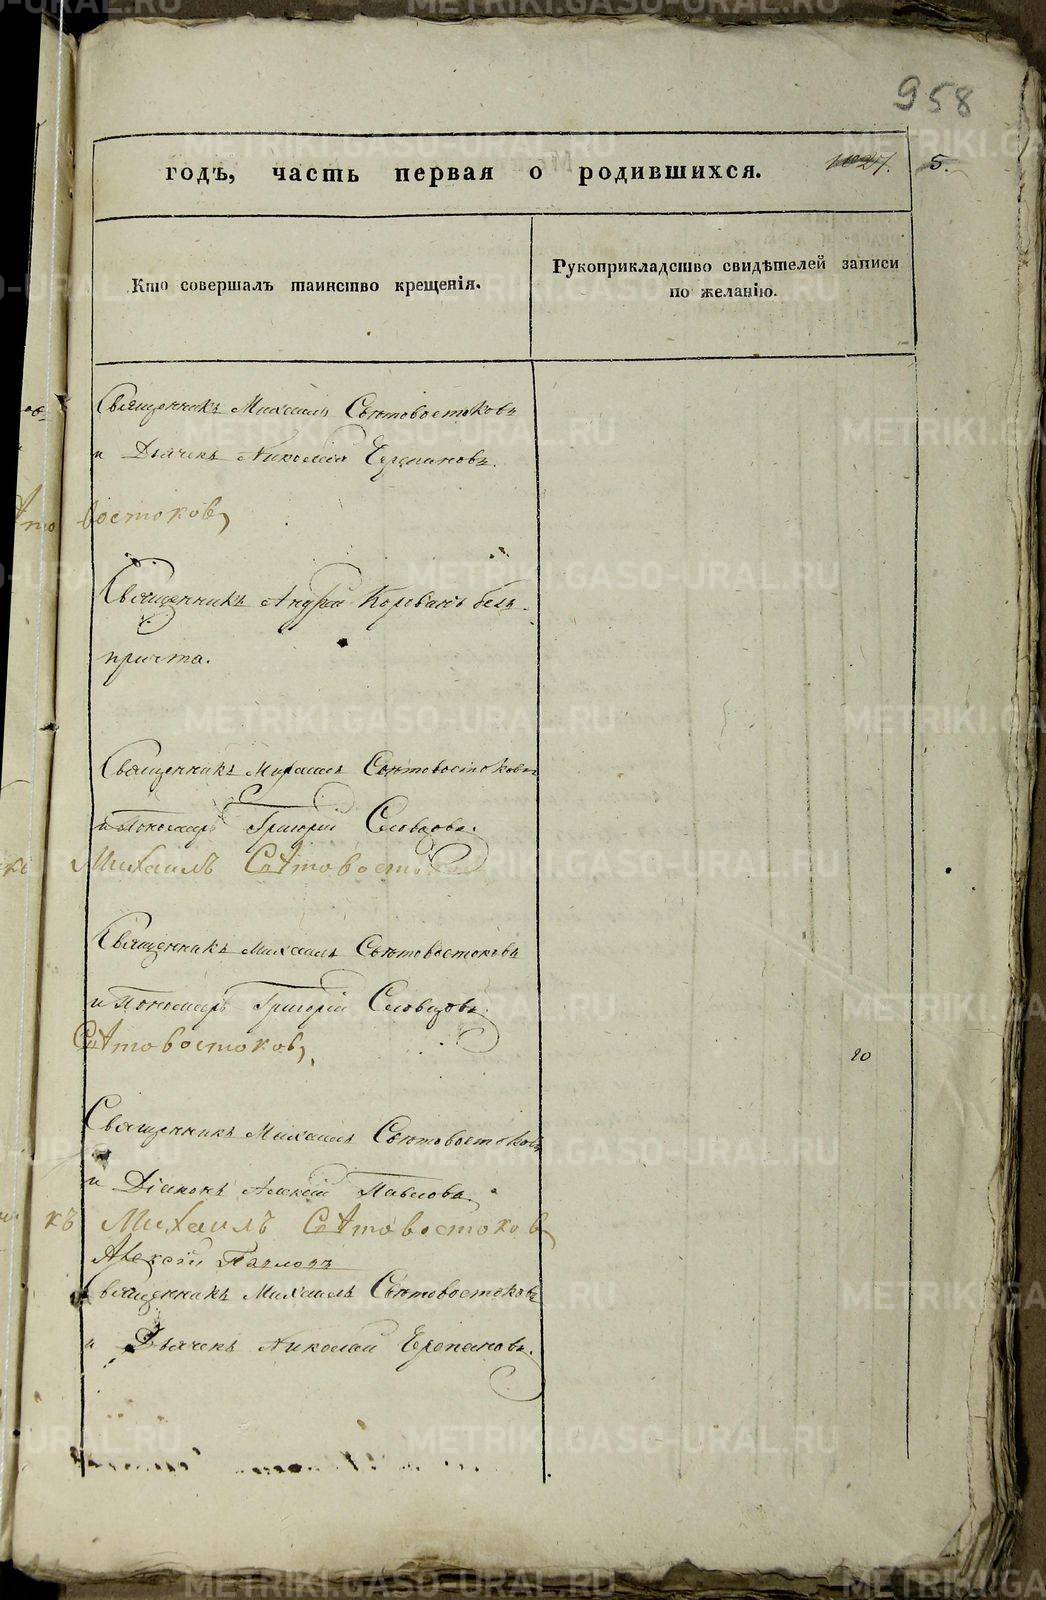 958
годъ, часть первая о родившихся.
5.
Кто совершалъ таинство крещенія.
Рукоприкладство свидѣтелей записи
по желанію.
Священникъ Михаилъ Свѣтовостоковъ
и Дьячекъ Николай Черепановъ.
востоковъ
Священникъ Андрей Коровинъ безъ
причта.
Священникъ Михаилъ Свѣтовостоковъ
и Пономарь Григорій Словцовъ.
Михаилъ Свѣтовостоковъ
Священникъ Михаилъ Свѣтовостоковъ
и Пономарь Григорій Словцовъ.
Свѣтовостоковъ,
20
Священникъ Михаилъ Свѣтовостоковъ
и Діаконъ Алексій Павловъ.
къ Михаилъ Свѣтовостоковъ
Алексій Павловъ
Священникъ Михаилъ Свѣтовостоковъ
и Дьячекъ Николай Черепановъ.
METRIKI.GASO-URAL.RU